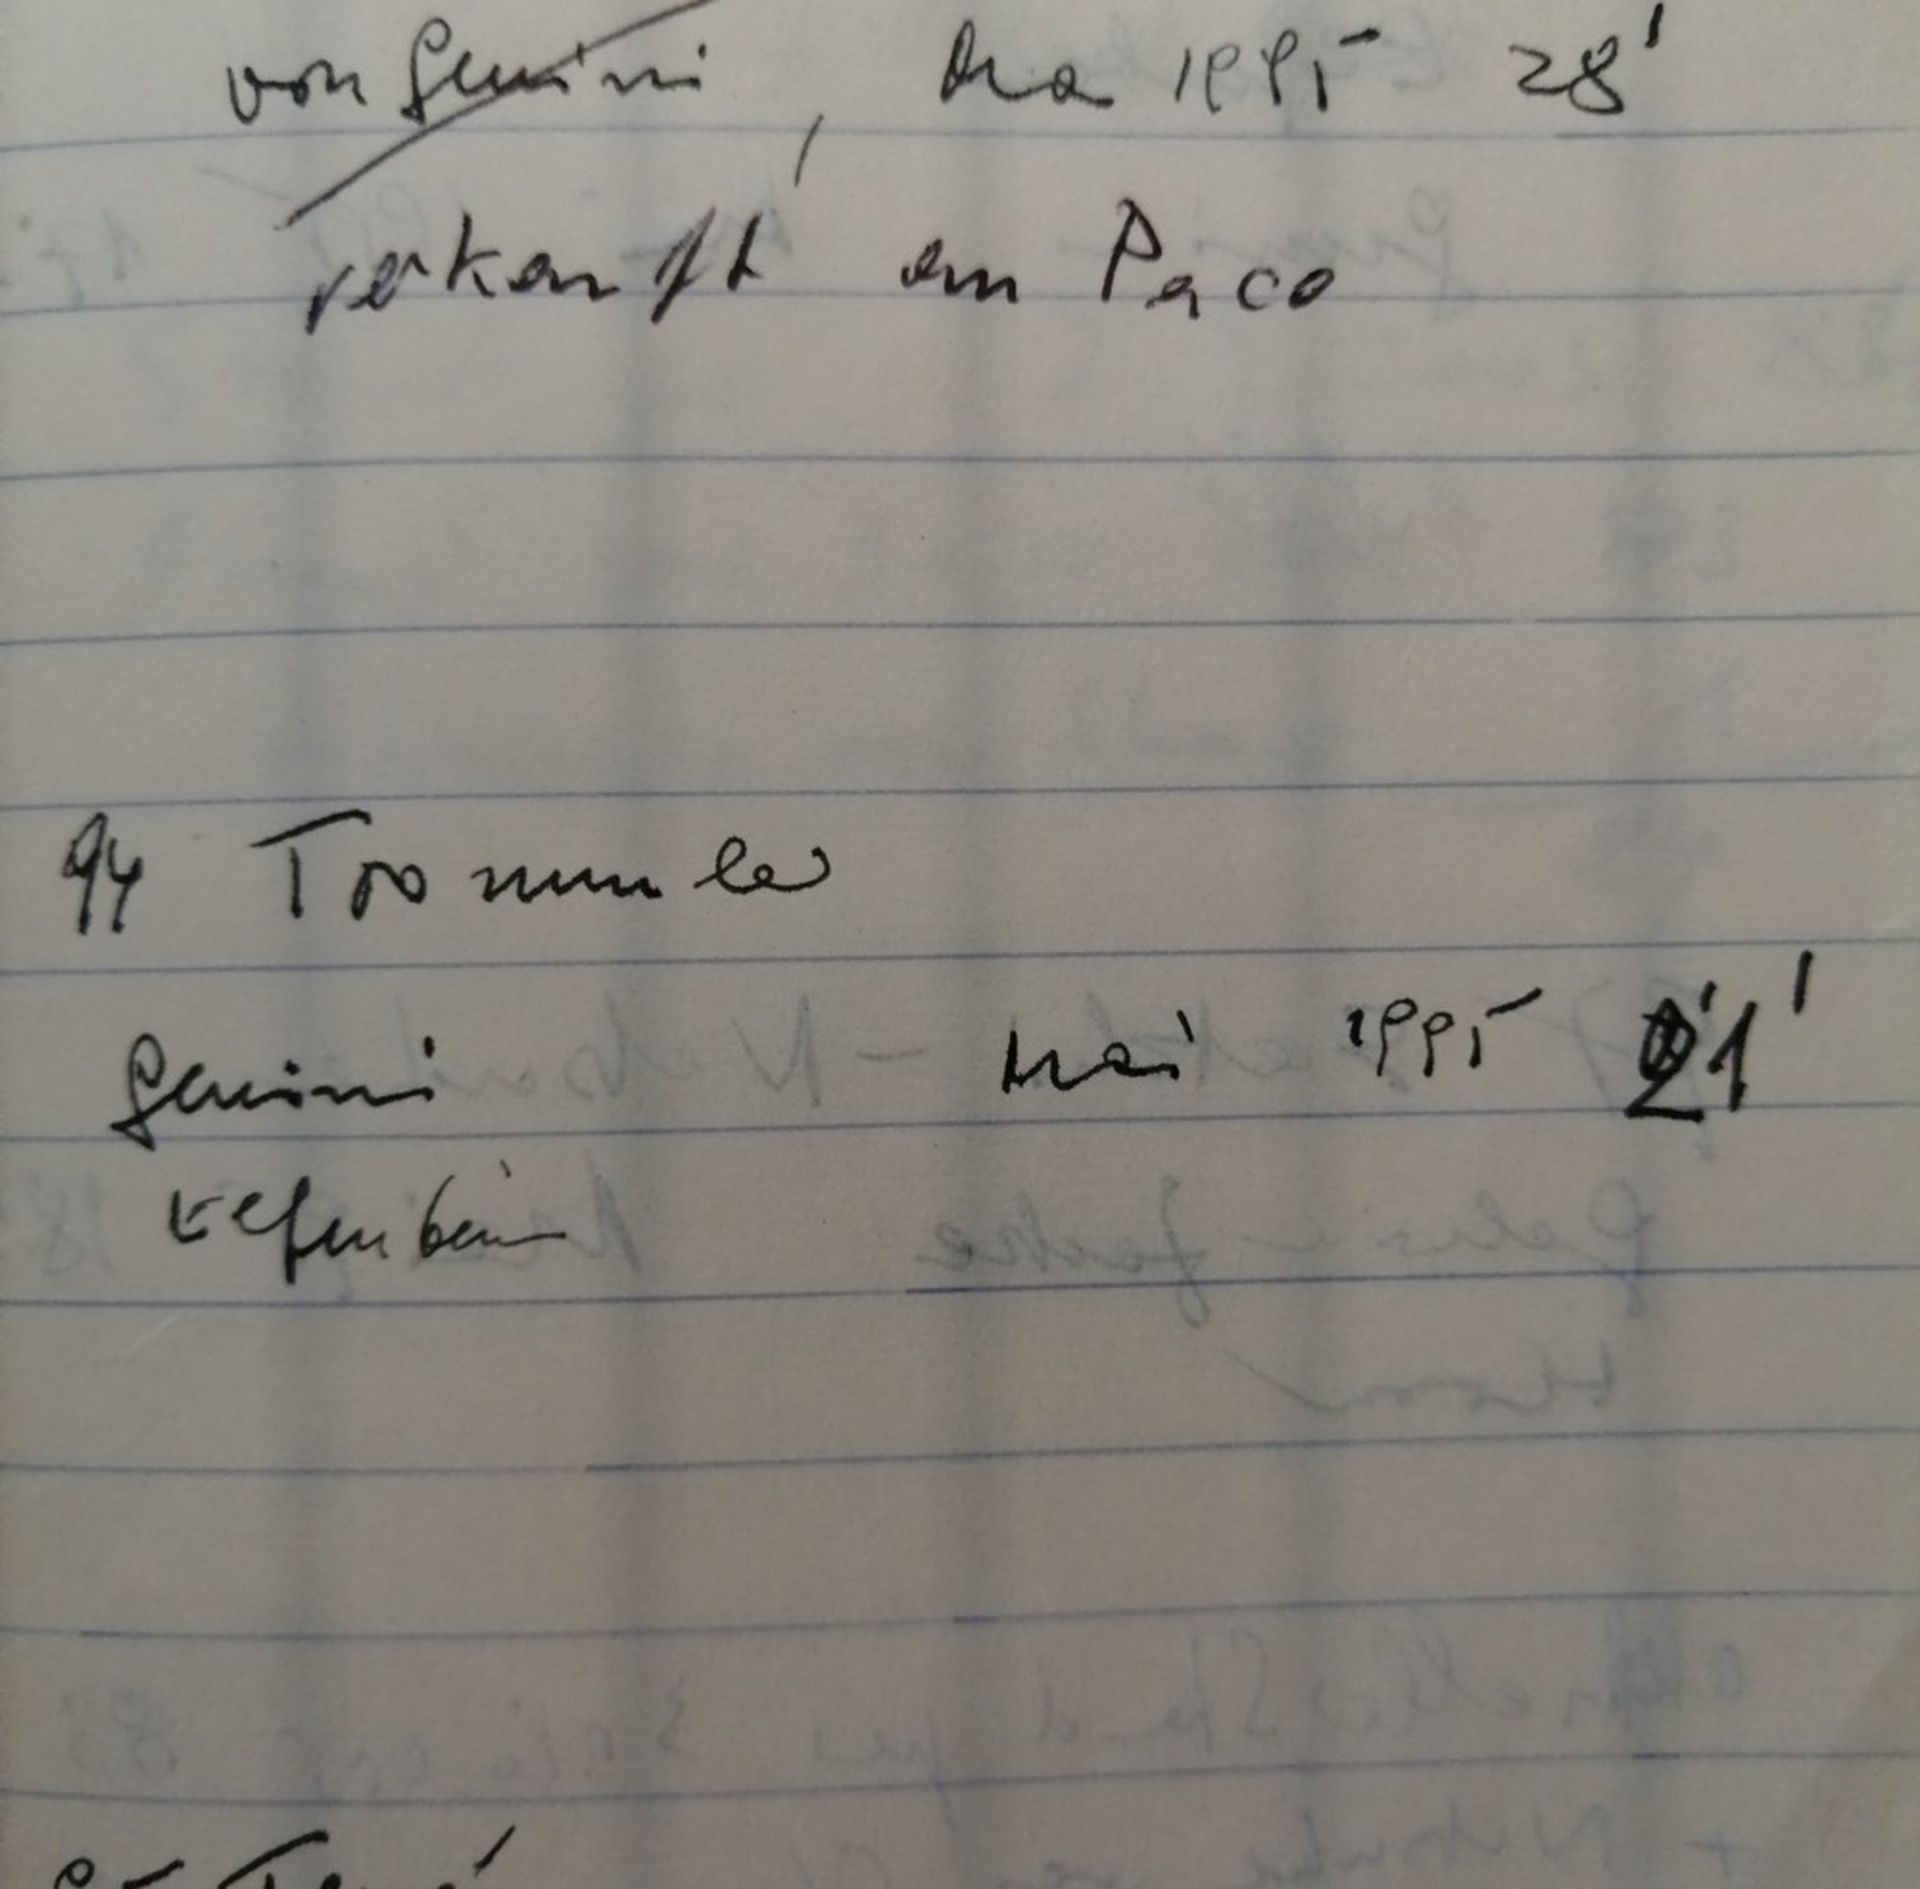 von Gemini, Mai 1995 28'
verkauft an Paco
94 Trommler
Gemini Mai 1995 21'
Elfenbein